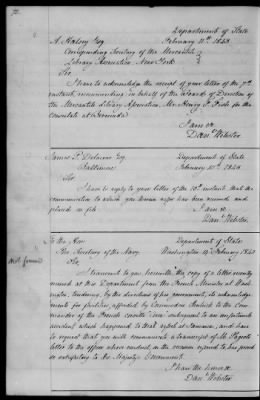 Department of State
A. Halsey Esq. February 11th 1843
Corresponding Secretary of the Mercantile
Library Association New York
Sir
I have to acknowledge the receipt of your letter of the 7th
instant, recommending in behalf of the Board of Direction of
the Mercantile Library Association, Mr. Henry P. for the
Consulate at Bermuda.
I am &c
Danl. Webster.
James P. Esq. Department of State
Baltimore February 11th 1843
Sir
I have to reply to your letter of the 10th instant, that the
communication to which you therein refer has been received and
placed on file. I am &c
Danl. Webster.
To the Hon. Department of State
The Secretary of the Navy. Washington February 1843
Sir,
I transmit to you, herewith, the copy of a letter recently
received at this Department from the French Minister at Wash-
ington, tendering, by the direction of his government, its acknowledg-
ments for facilities, afforded by Commodore to the Com-
mander of the French subsequent to an unfortunate
accident, which happened to that vessel at and have
to request that you will communicate a transcript of Mr.
letter to the officer whose conduct, on the occasion referred to, has proved
so satisfactory to His Majesty's Government.
I have the honor &c
Danl. Webster